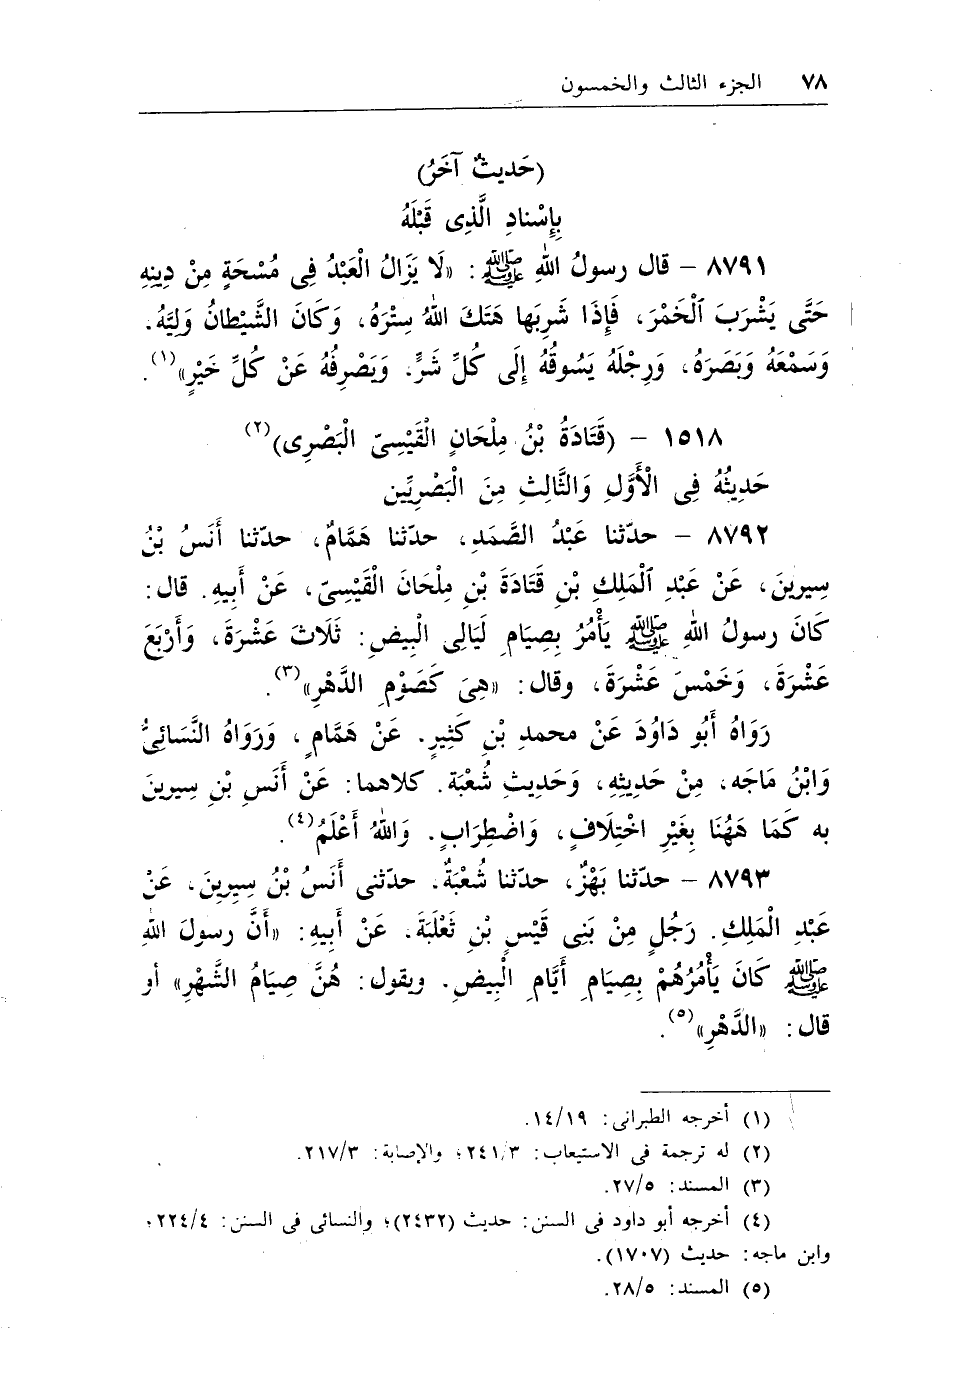 ٧٨ الجزء الثالث والخمسون
(حَديثٌ آخَرُ)
بِإِسْنادِ الَّذِى قَبْلَهُ
٨٧٩١ – قال رسولُ اللهِ ﷺ: «لَا يَزَالُ الْعَبْدُ فِى مُسْحَةٍ مِنْ دِينِهِ
حَتَّى يَشْرَبَ ٱلْخَمْرَ، فَإِذَا شَرِبَها هَتَكَ اللهُ سِتْرَهُ، وَكَانَ الشَّيْطانُ وَلِيَّهُ.
وَسَمْعَهُ وَبَصَرَهُ، وَرِجْلَهُ يَسُوقُهُ إِلَى كُلِّ شَرٍّ. وَيَصْرِفُهُ عَنْ كُلِّ خَيْرٍ»(١).
١٥١٨ – (قَتَادَةُ بْنُ مِلْحَانٍ الْقَيْسِىّ الْبَصْرِى)(٢)
حَدِيثُهُ فِى الْأَوَّلِ وَالثَّالِثِ مِنَ الْبَصْرِيِّين
٨٧٩٢ – حدّثنا عَبْدُ الصَّمَدِ، حدّثنا هَمَّامٌ، حدّثنا أَنَسُ بْنُ
سِيرِينَ، عَنْ عَبْدِ ٱلْمَلِكِ بْنِ قَتَادَةَ بْنِ مِلْحَانَ الْقَيْسِىّ، عَنْ أَبِيهِ. قال:
كَانَ رسولُ اللهِ ﷺ يَأْمُرُ بِصِيَامِ لَيَالِى الْبِيضِ: ثَلَاثَ عَشْرَةَ، وَأَرْبَعَ
عَشْرَةَ، وَخَمْسَ عَشْرَةَ، وقال: «هِىَ كَصَوْمِ الدَّهْرِ»(٣).
رَوَاهُ أَبُو دَاوُدَ عَنْ محمدِ بْنِ كَثِيرٍ. عَنْ هَمَّامٍ، وَرَوَاهُ النَّسَائِىُّ
وَابْنُ مَاجَه، مِنْ حَدِيثِهِ، وَحَدِيثِ شُعْبَة. كلاهما: عَنْ أَنَسِ بْنِ سِيرِينَ
به كَمَا هَهُنَا بِغَيْرِ اخْتِلَافٍ، وَاضْطِرَابٍ. وَاللهُ أَعْلَمُ(٤).
٨٧٩٣ – حدّثنا بَهْزٌ، حدّثنا شُعْبَةٌ. حدّثنى أَنَسُ بْنُ سِيرِينَ، عَنْ
عَبْدِ الْمَلِكِ. رَجُلٍ مِنْ بَنِى قَيْسِ بْنِ ثَعْلَبَةَ. عَنْ أَبِيهِ: «أَنَّ رسولَ اللهِ
ﷺ كَانَ يَأْمُرُهُمْ بِصِيَامِ أَيَّامِ الْبِيضِ. ويقول: هُنَّ صِيَامُ الشَّهْرِ» أو
قال: «الدَّهْرِ»(٥).
(١) أخرجه الطبرانى: ١٤/١٩.
(٢) له ترجمة فى الاستيعاب: ٢٤١/٣؛ والإصابة: ٢١٧/٣.
(٣) المسند: ٢٧/٥.
(٤) أخرجه أبو داود فى السنن: حديث (٢٤٣٢)؛ والنسائى فى السنن: ٢٢٤/٤؛
وابن ماجه: حديث (١٧٠٧).
(٥) المسند: ٢٨/٥.